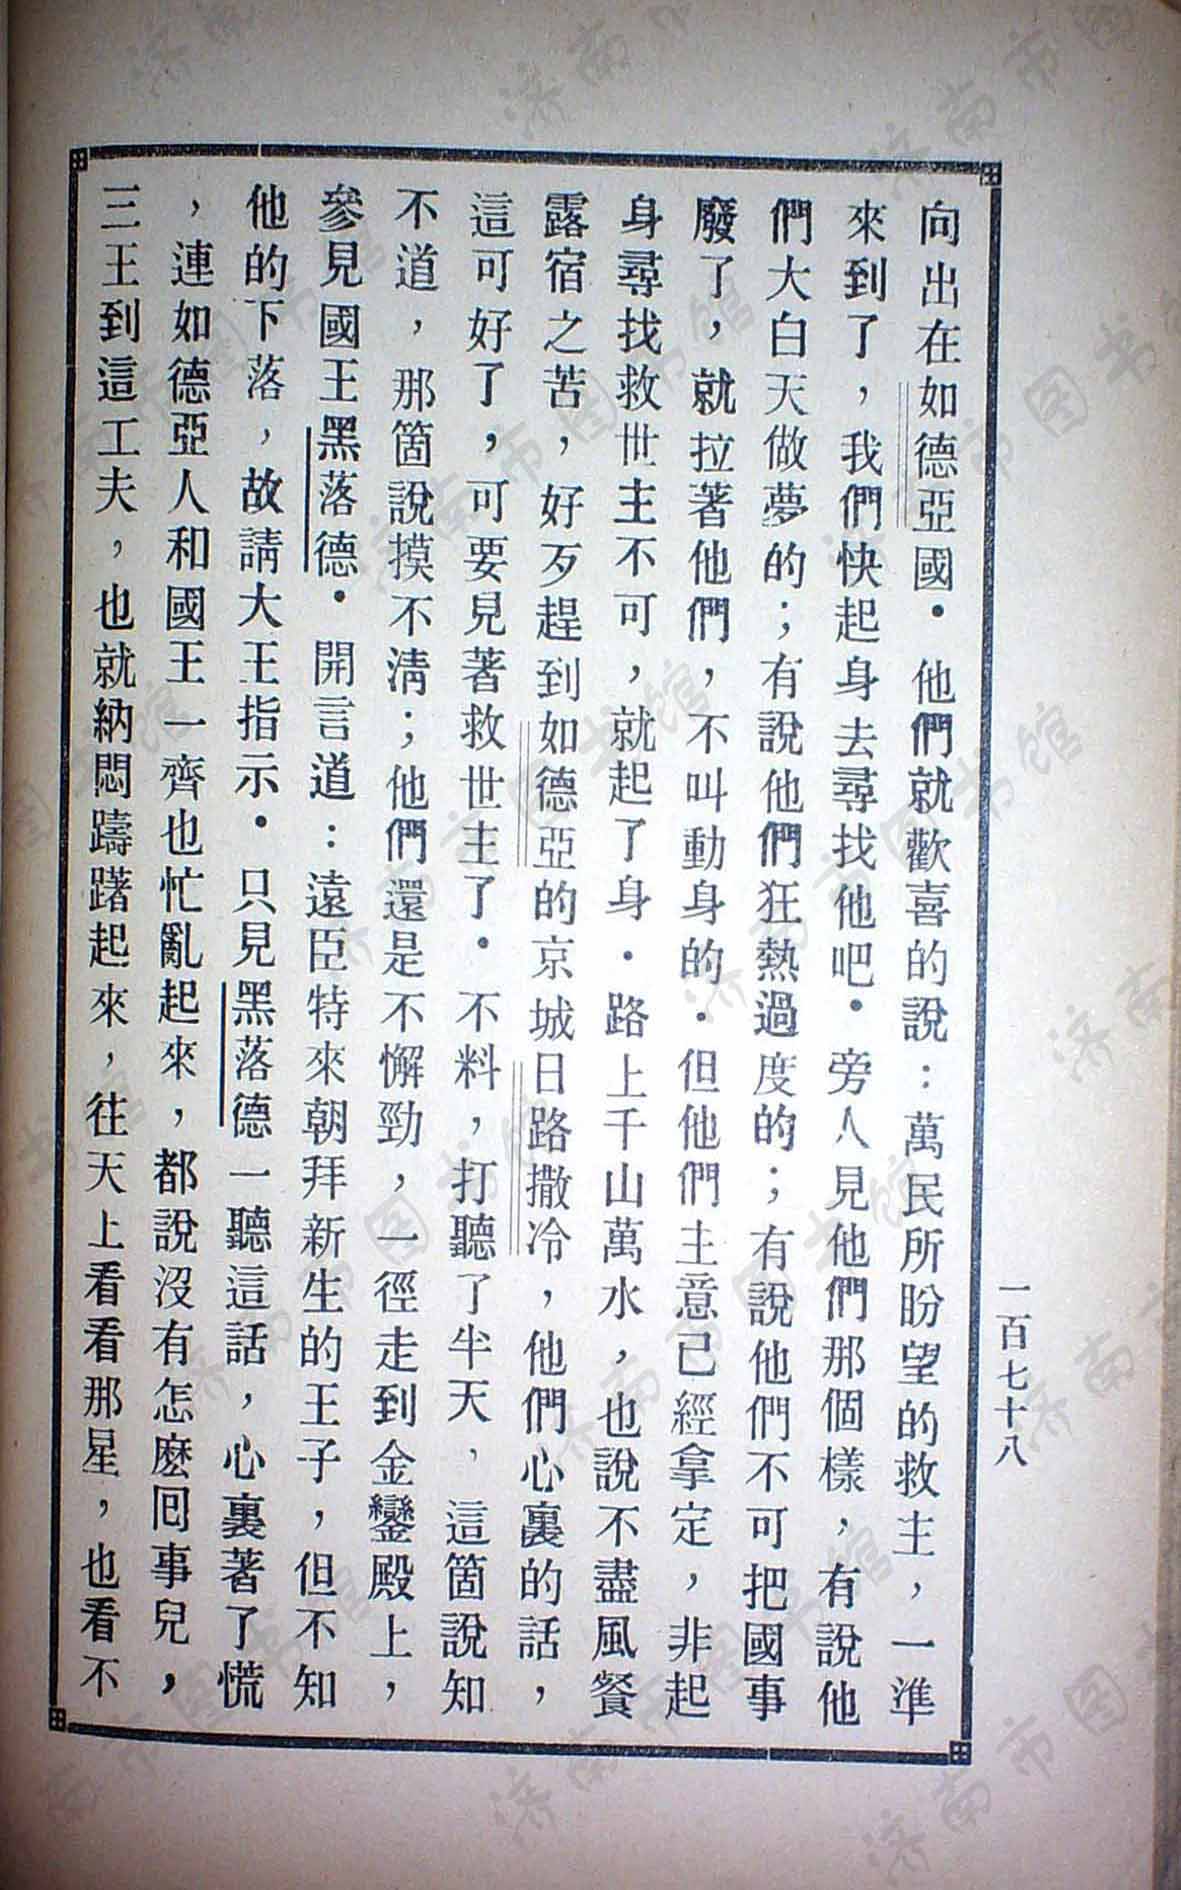 向出在如德亞國．他們就歡喜的說：萬民所盼望的救主，一準
來到了，我們快起身去尋找他吧．旁人見他們那個樣，有說他
們大白天做夢的；有說他們狂熱過度的；有說他們不可把國事
廢了，就拉著他們，不叫動身的．但他們主意已經拿定，非起
身尋找救世主不可，就起了身．路上千山萬水，也說不盡風餐
露宿之苦，好歹趕到如德亞的京城日路撒冷，他們心裏的話，
這可好了，可要見著救世主了．不料，打聽了半天，這箇說知
不道，那箇說摸不清；他們還是不懈勁，一徑走到金鑾殿上，
參見國王黑落德．開言道：遠臣特來朝拜新生的王子，但不知
他的下落，故請大王指示．只見黑落德一聽這話，心裏著了慌
，連如德亞人和國王一齊也忙亂起來，都說沒有怎麼囘事兒，
三王到這工夫，也就納悶躊躇起來，往天上看看那星，也看不
一百七十八
济南市图书馆